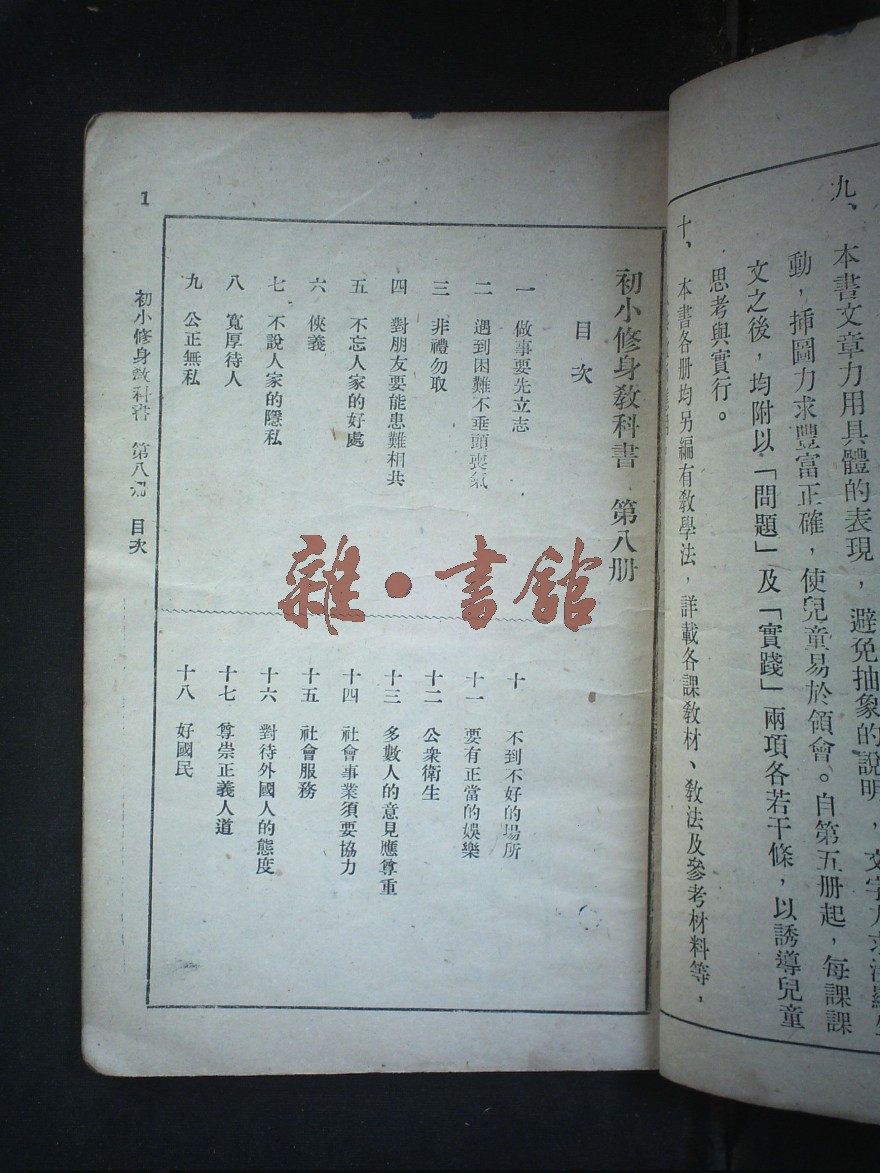 九、本書文章力用具體的表現，避免抽象的說明，文字力求淺顯生
動，挿圖力求豐富正確，使兒童易於領會。自第五册起，每課課
文之後，均附以「問題」及「實踐」兩項各若干條，以誘導兒童
思考與實行。
十、本書各册均另編有教學法，詳載各課教材、教法及參考材料等，
初小修身教科書　第八册
目次
一　做事要先立志
二　遇到困難不垂頭喪氣
三　非禮勿取
四　對朋友要能患難相共
五　不忘人家的好處
六　俠義
七　不說人家的隱私
八　寬厚待人
九　公正無私
十　不到不好的場所
十一　要有正當的娛樂
十二　公衆衛生
十三　多數人的意見應尊重
十四　社會事業須要協力
十五　社會服務
十六　對待外國人的態度
十七　尊崇正義人道
十八　好國民
初小修身教科書　第八册　目次
1
雜·書館